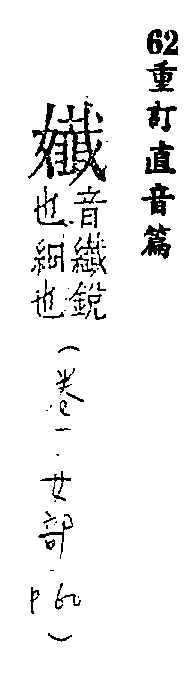 62重訂直音篇
孅
音纖銳
也細也
（卷一·女部·p60）